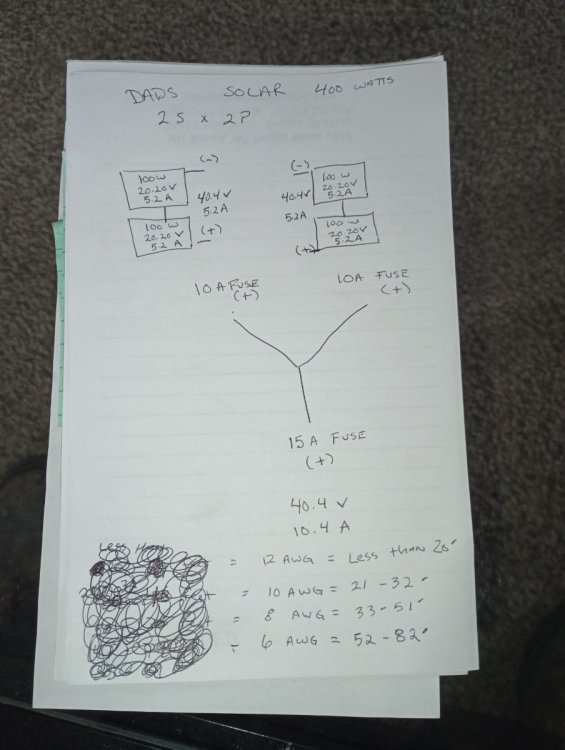 DADS SOLAR 400 WATTS
2S x 2P
(-)
100W
20.20V
5.2A
40.4V
5.2A
100W
20.20V
5.2 A
(+)
(-)
100W
20.20V
5.2A
40.4V
5.2A
100W
20.20V
5.2A
(+)
10A FUSE
(+)
10A FUSE
(+)
15A FUSE
(+)
40.4 V
10.4 A
Less than
= 12 AWG = Less than 20'
= 10 AWG = 21-32'
= 8 AWG = 33-51'
= 6 AWG = 52-82'